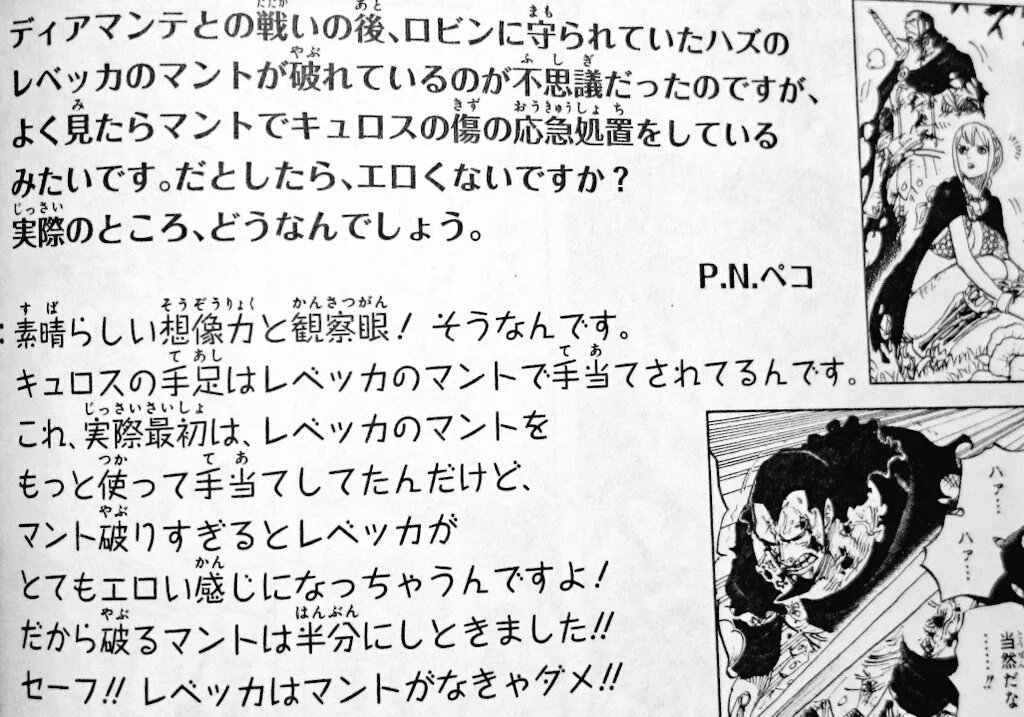 ディアマンテとの戦いの後、ロビンに守られていたハズの
レベッカのマントが破れているのが不思議だったのですが、
よく見たらマントでキュロスの傷の応急処置をしている
みたいです。だとしたら、エロくないですか?
実際のところ、どうなんでしょう。
P.N.ペコ
:素晴らしい想像力と観察眼! そうなんです。
キュロスの手足はレベッカのマントで手当てされてるんです。
これ、実際最初は、レベッカのマントを
もっと使って手当てしてたんだけど、
マント破りすぎるとレベッカが
とてもエロい感じになっちゃうんですよ!
だから破るマントは半分にしときました!!
セーフ!! レベッカはマントがなきゃダメ!!
ハァ…
ハァ…
当然だな
……!!